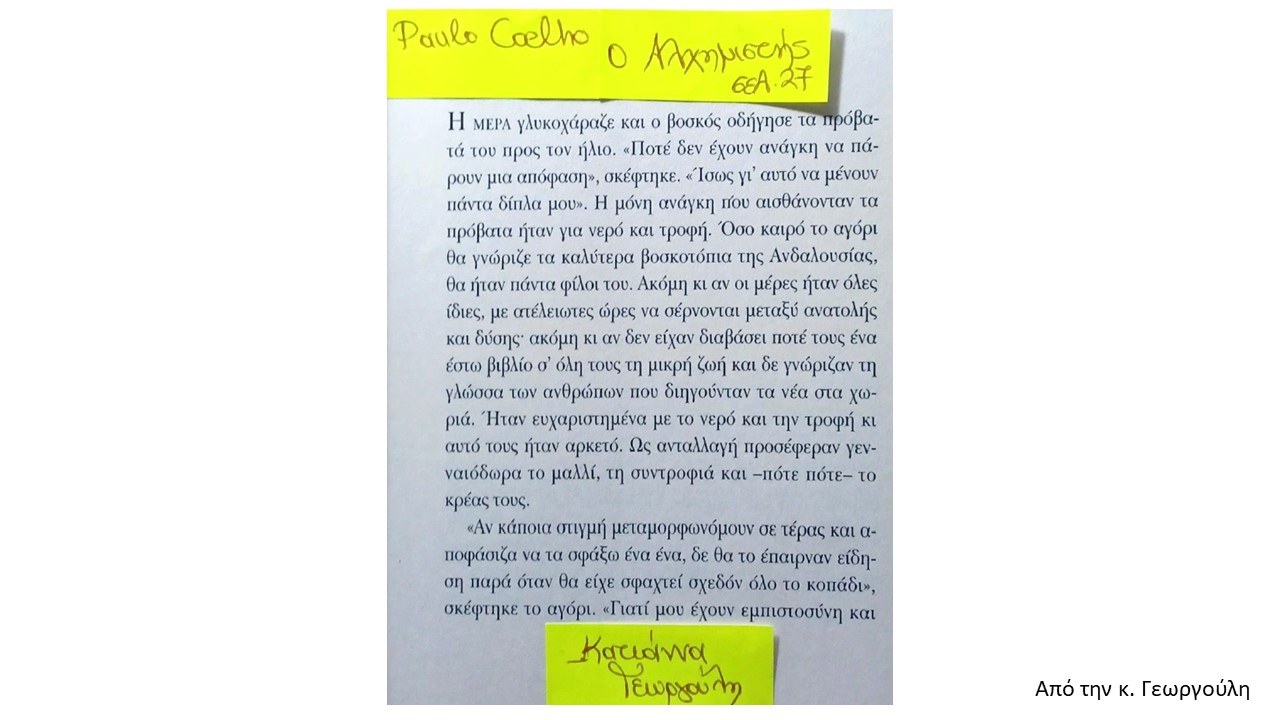 Paulo Coelho
Ο Αλχημιστής
σελ. 27
Η ΜΕΡΑ γλυκοχάραζε και ο βοσκός οδήγησε τα πρόβα-
τά του προς τον ήλιο. «Ποτέ δεν έχουν ανάγκη να πά-
ρουν μια απόφαση», σκέφτηκε. «Ίσως γι' αυτό να μένουν
πάντα δίπλα μου». Η μόνη ανάγκη που αισθάνονταν τα
πρόβατα ήταν για νερό και τροφή. Όσο καιρό το αγόρι
θα γνώριζε τα καλύτερα βοσκοτόπια της Ανδαλουσίας,
θα ήταν πάντα φίλοι του. Ακόμη κι αν οι μέρες ήταν όλες
ίδιες, με ατέλειωτες ώρες να σέρνονται μεταξύ ανατολής
και δύσης· ακόμη κι αν δεν είχαν διαβάσει ποτέ τους ένα
έστω βιβλίο σ' όλη τους τη μικρή ζωή και δε γνώριζαν τη
γλώσσα των ανθρώπων που διηγούνταν τα νέα στα χω-
ριά. Ήταν ευχαριστημένα με το νερό και την τροφή κι
αυτό τους ήταν αρκετό. Ως ανταλλαγή προσέφεραν γεν-
ναιόδωρα το μαλλί, τη συντροφιά και –πότε πότε– το
κρέας τους.
«Αν κάποια στιγμή μεταμορφωνόμουν σε τέρας και α-
ποφάσιζα να τα σφάξω ένα ένα, δε θα το έπαιρναν είδη-
ση παρά όταν θα είχε σφαχτεί σχεδόν όλο το κοπάδι»,
σκέφτηκε το αγόρι. «Γιατί μου έχουν εμπιστοσύνη και
Κατιάννα
Γεωργούλη
Από την κ. Γεωργούλη